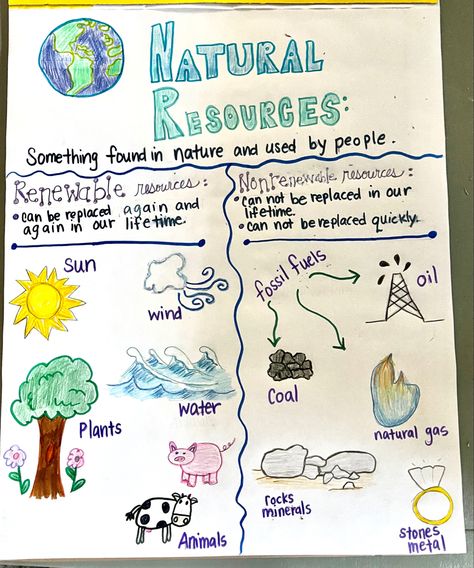 NATURAL
RESOURCES:
Something found in nature and used by people.
Renewable resources:
• can be replaced again and
again in our lifetime.
sun
wind
water
Plants
Animals
Nonrenewable resources:
• can not be replaced in our
lifetime.
• can not be replaced quickly.
fossil fuels
oil
coal
natural gas
rocks
minerals
stones
metal